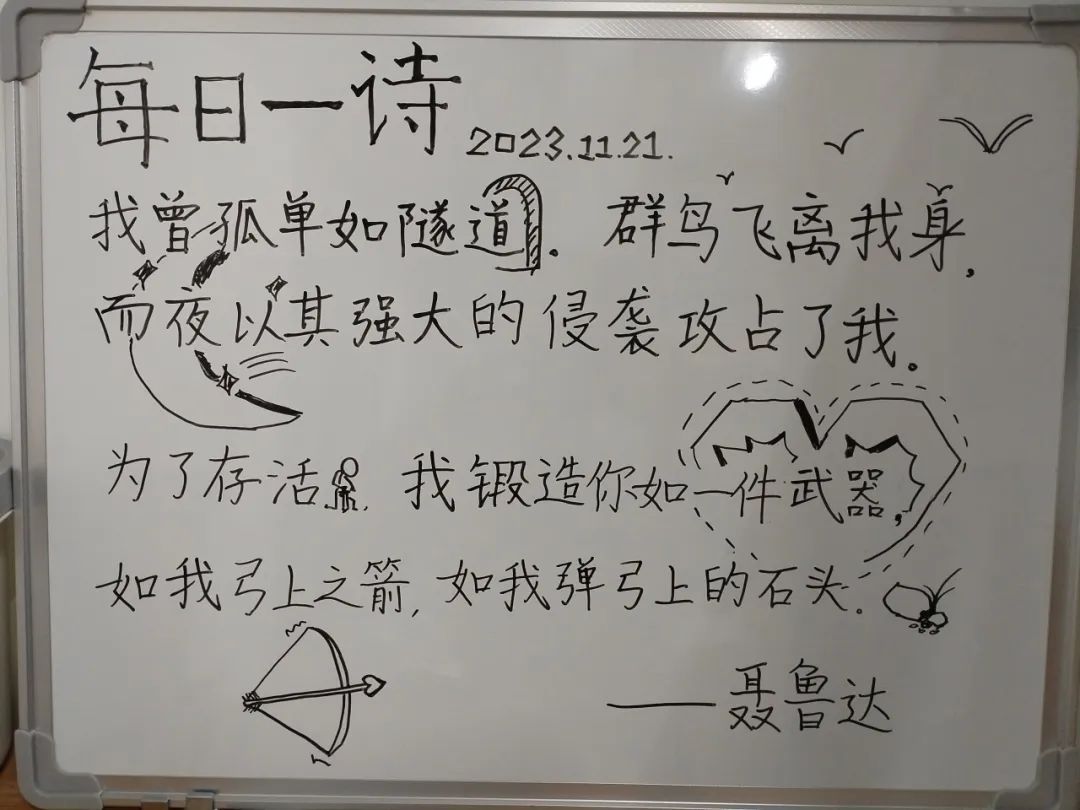 每日一诗 2023.11.21.
我曾孤单如隧道. 群鸟飞离我身,
而夜以其强大的侵袭攻占了我。
为了存活. 我锻造你如一件武器,
如我弓上之箭, 如我弹弓上的石头.
——聂鲁达